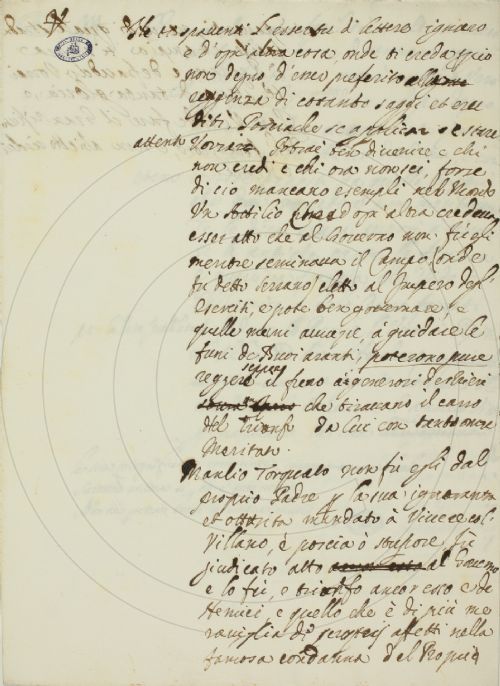 Ne ti spaventi l'esser tu di lettere ignaro
e d'ogn'altra cosa onde ti creda ch'io
non degno d'esser preferito
reggenza di cotanto saggi et eru
diti. Posciache se applicar et stare
attento Vorrai Potrai ben divenire e chi
non eredi e chi ora non sei, forse
di ciò mancano esempi nel Mondo
Un Attilio ch'ad ogn'altra
esser atto che al Governo non fù egli
mentre seminava il Campo onde
fù detto Serrano eletto al Impero degl'
Eserciti, e pote ben governare, e
quelle mani avezze, à guidare le
funi de Buoi aranti, poterono pure
reggere il freno à generosi destrieri
che tiravano il carro
del Trionfo da lui con tanto onore
Meritato.
Manlio Torquato non fù egli dal
proprio Padre p la sua ignoranza
et mandato à Vivere col
Villano, e poscia ò stupore fù
giudicato atto al Governo
e lo fù, e trionfo ancor esso de
Hernici, e quello che è di più me
raviglia di affetti nella
famosa condanna del Proprio